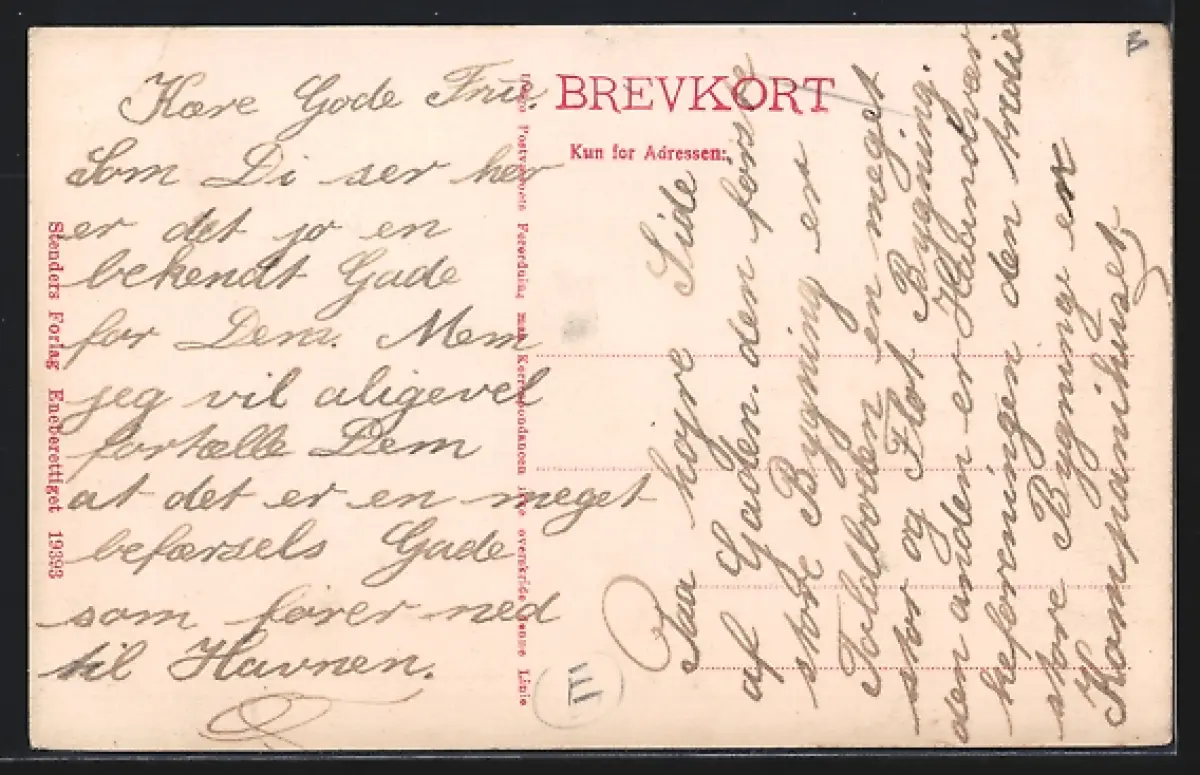 Kære Gode Fru.
Som Di ser her
er det jo en
bekendt Gade
for Dem. Mem
jeg vil aligevel
fortælle Dem
at det er en meget
befærsels Gade
som fører ned
til Havnen.
BREVKORT
Kun for Adressen:
Paa højre Side
af Gaden. den første
store Bygning er
Toldboden en meget
stor og Flot Bygning.
den anden er Haandvær
keforeningen den tridie
store Bygning er
Kompanihuset
Stenders Forlag Eneberettiget 19393
Ifølge Postvæsenets Forordning maa Korrespondancen ikke overskride denne Linie
III